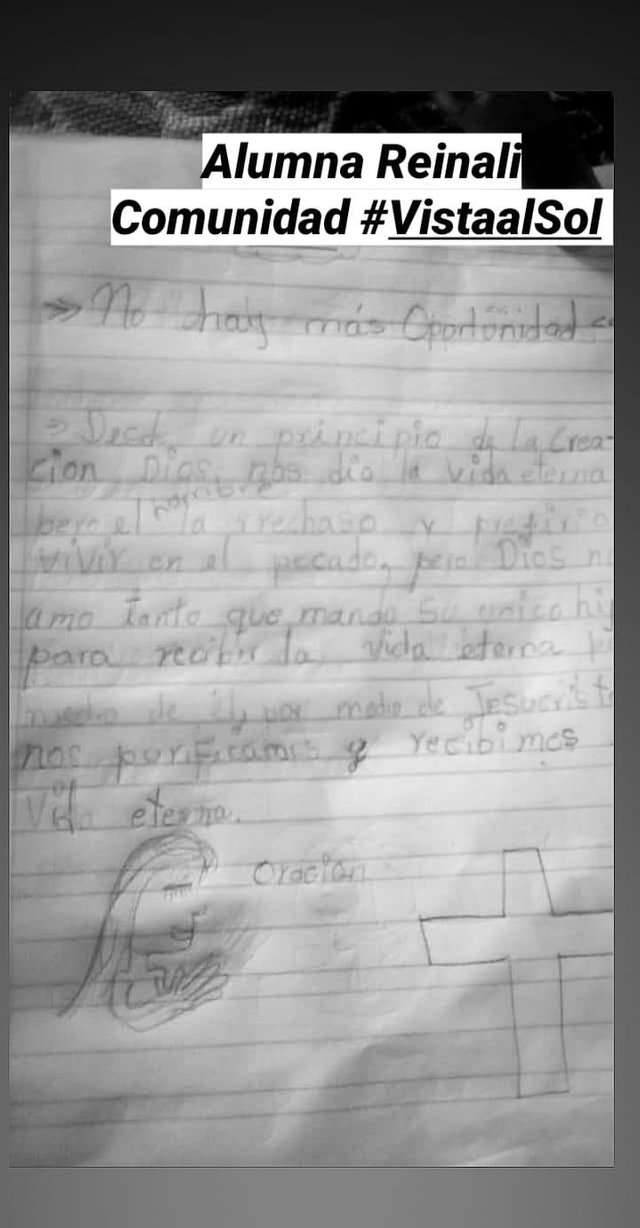 Alumna Reinali
Comunidad #VistaalSol
No hay más Oportunidad
Desde un principio de la Crea-
cion Dios, nos dio la vida eterna
pero el hombre la rrechaso y prefirio
vivir en el pecado, pero Dios n
amo tanto que mando su unico hi
para recibir la vida eterna p
medio de el, por medio de Jesucrist
nos purificamos y recibimos
Vida eterna.
Oracion